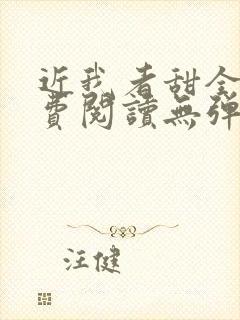 近我者甜全
費閱讀無彈
汪健